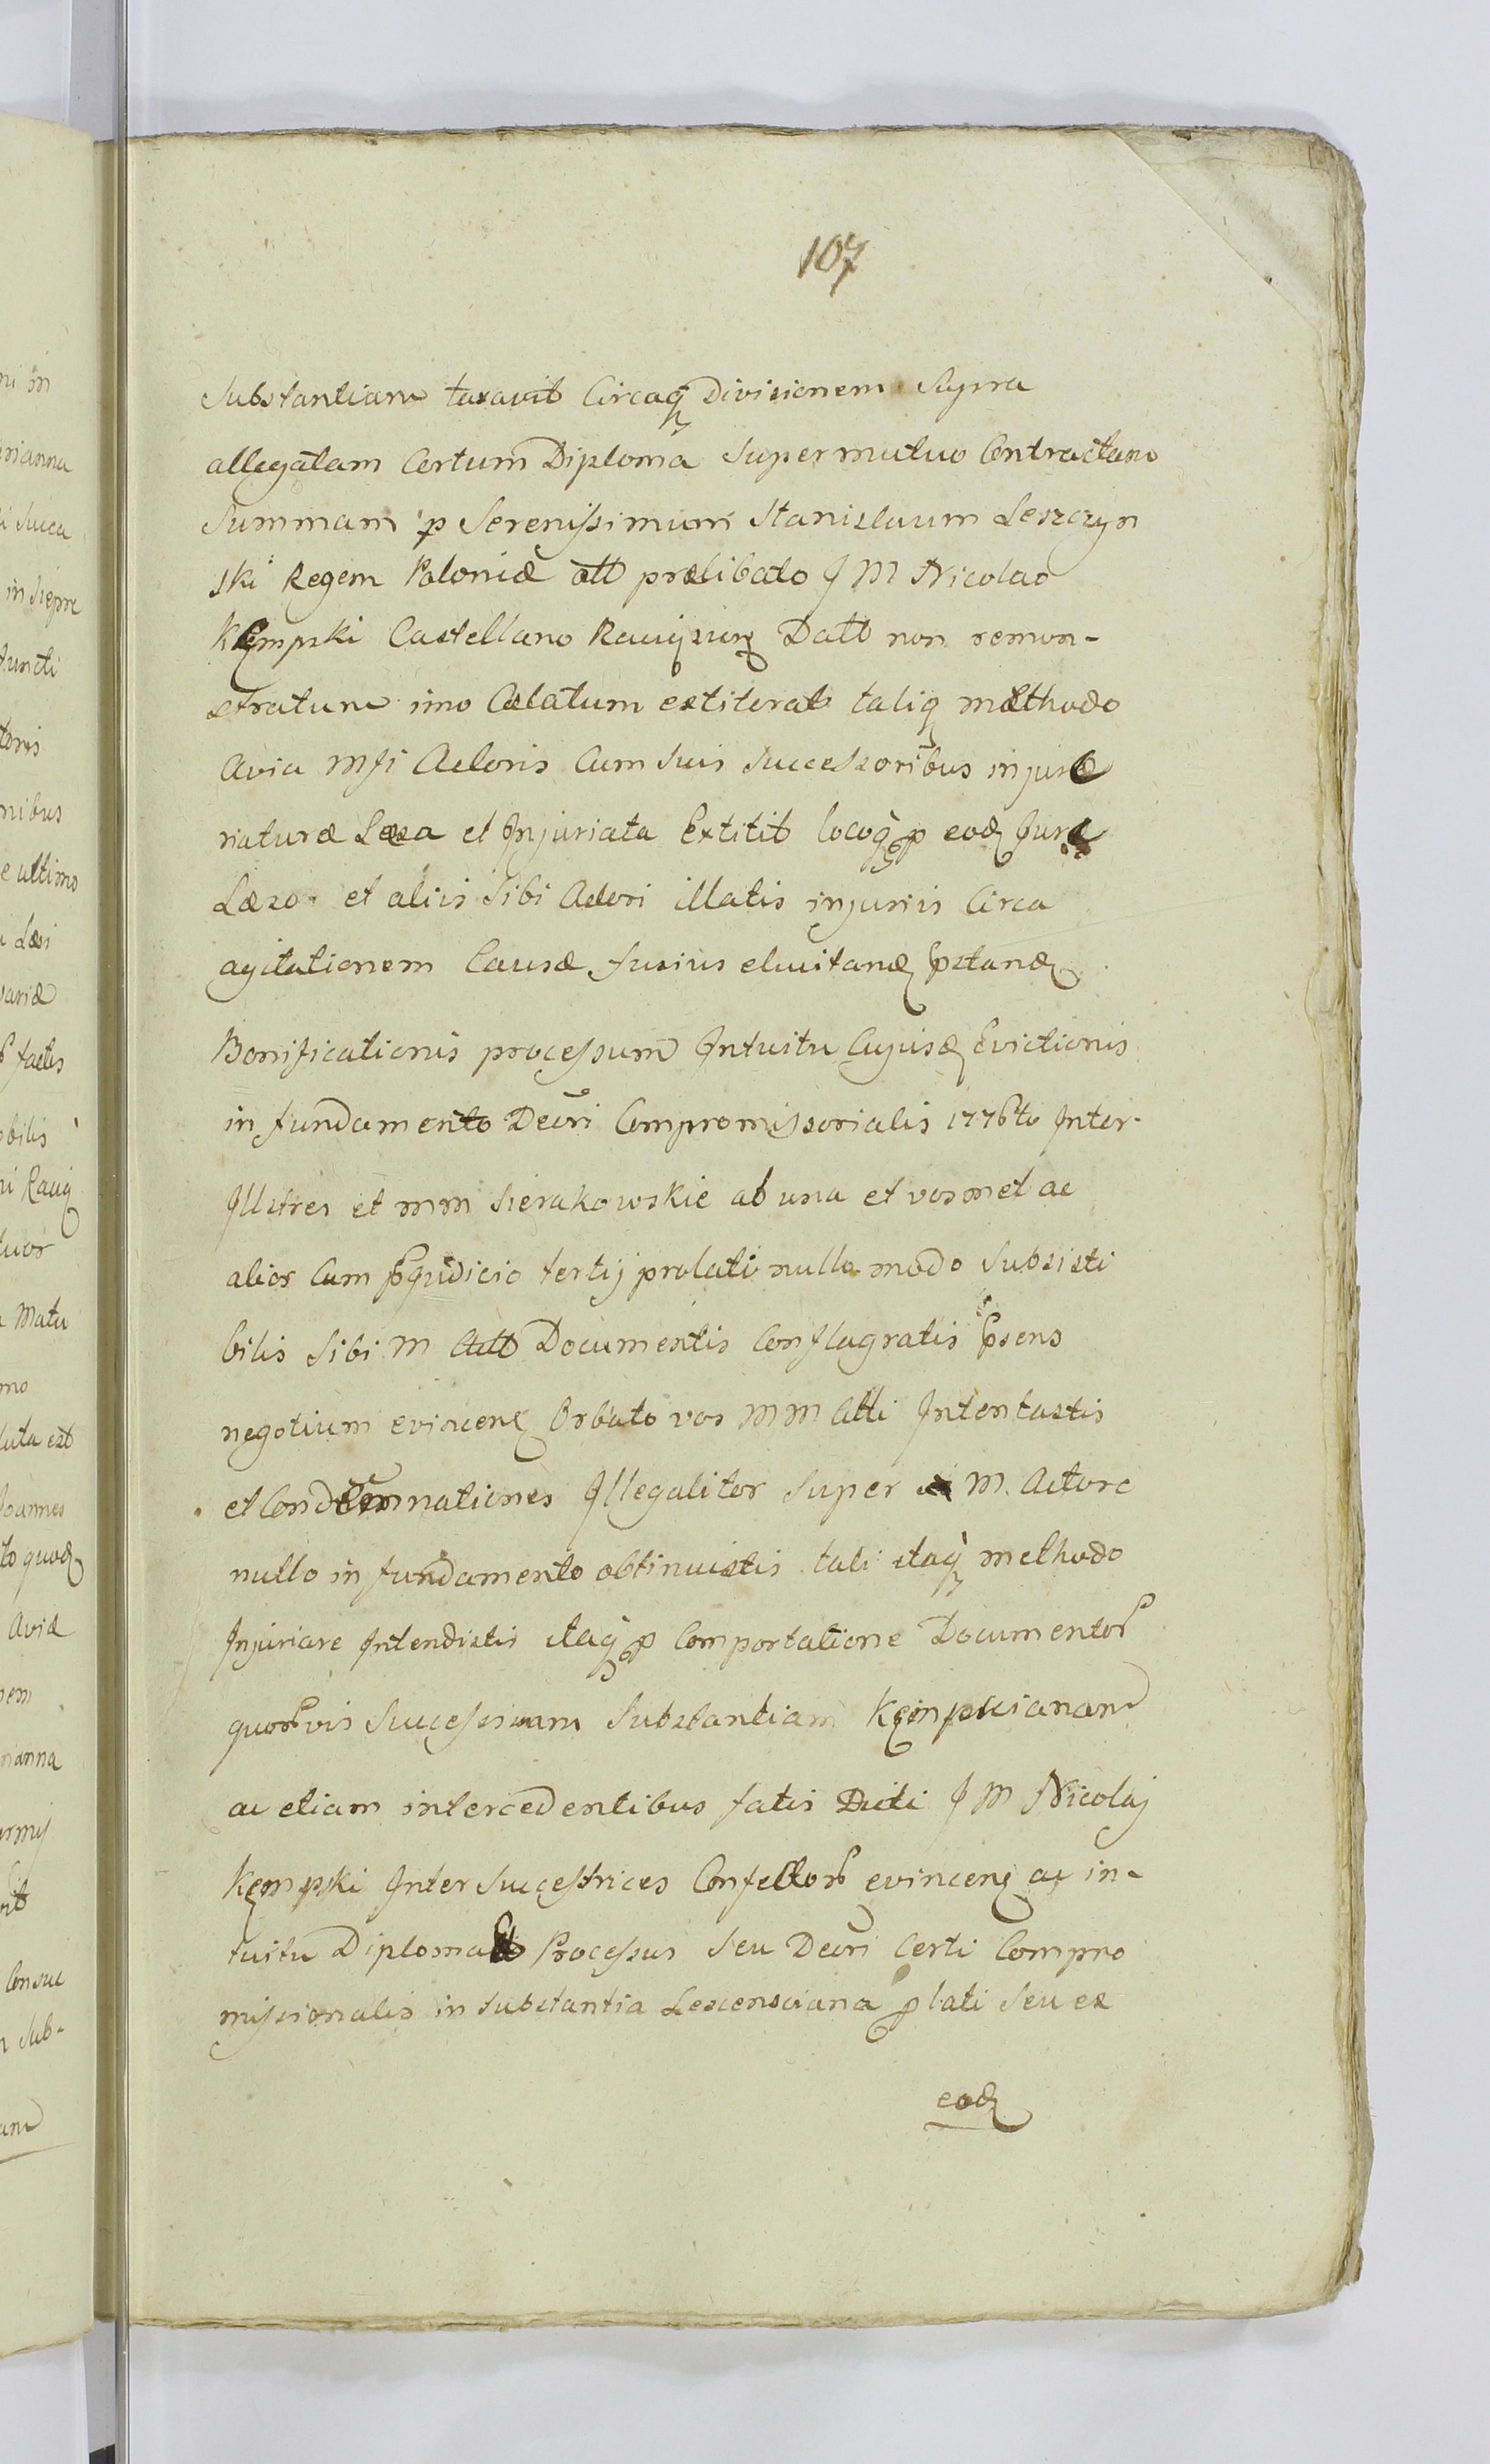 107
Substantiam taxavit Circaq Divisionem Supra
allegatam Certum Diploma Super mutuo Contractam
Summam p Serenissimum Stanislaum Leszczyn
ski Regem Poloniæ olt prælibato J M Nicolao
Kępski Castellano Datt non remon-
stratum imo Celatum extiterat taliq methodo
Avia Mfi Actoris Cum Suis Successoribus injure
naturæ Læsa et Injuriata Extitit locoq p eod Jure
Læso et aliis Sibi Actori illatis injuriis Circa
agitationem Causæ fusius
Bonificationis processum Intuitu Evictionis
in fundamento Decri Compromissorialis 1776to Inter
Illstres et mm Sierakowskie ab una et vosmet ac
alios Cum tertij prolati nullo modo Subsisti
bilis Sibi M Documentis Conflagratis psens
negotium evincen Orbato vos MM Atti Intentastis
et Condemnationes Illegaliter Super M. Actore
nullo in fundamento obtinuistis tali itaq methodo
Injuriare Intendistis itaq p Comportatione Documentor
quorvis Successivam Substantiam Kempscianam
ac etiam intercedentibus fatis Dicti J M Nicolaj
Kempski Inter Successtrices Confector evincen ac in-
tuitu Processus Seu Decri Certi Compro
missionalis in substantia Lescensciana plati Seu ex
eod
ni in
rianna
i Succa
in Siepre
functi
nibus
e ultimo
Læsi
factis
obilis
ni Rawij
Matu
mo
luta est
Joannes
to quod
Avia
nem
rianna
Consue
Sub-